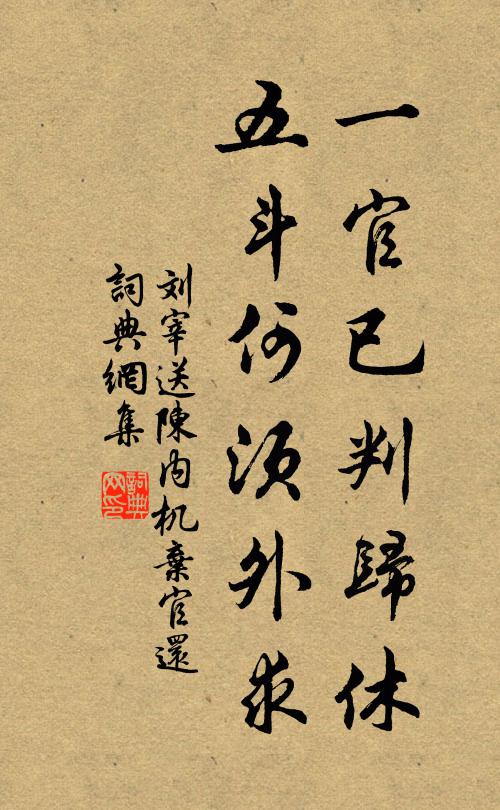 一官已判歸休
五斗何須外求
刘宰送陳内机棄官還
詞典網集
詞典網印